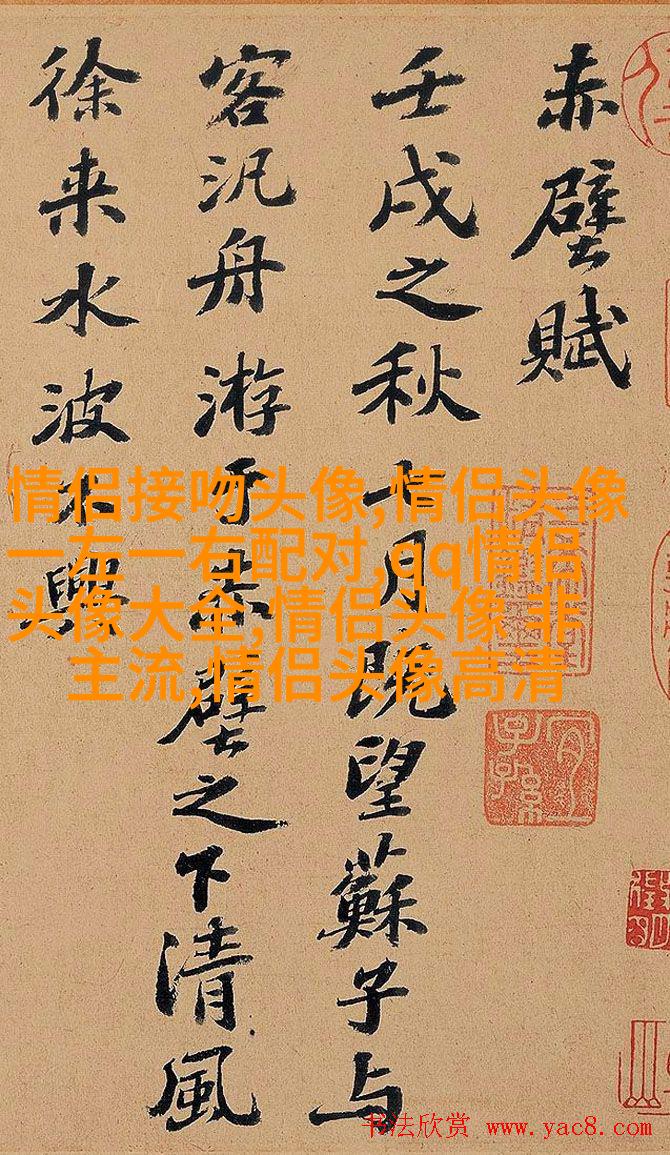 赤壁賦
壬戌之秋七月既望蘇子与
客汎舟游于赤壁之下清風
徐来水波不興
情侣接吻头像,情侣头像
一左一右配对,qq情侣
头像大全,情侣头像 非
主流,情侣头像高清
书法欣赏 www.yac8.com